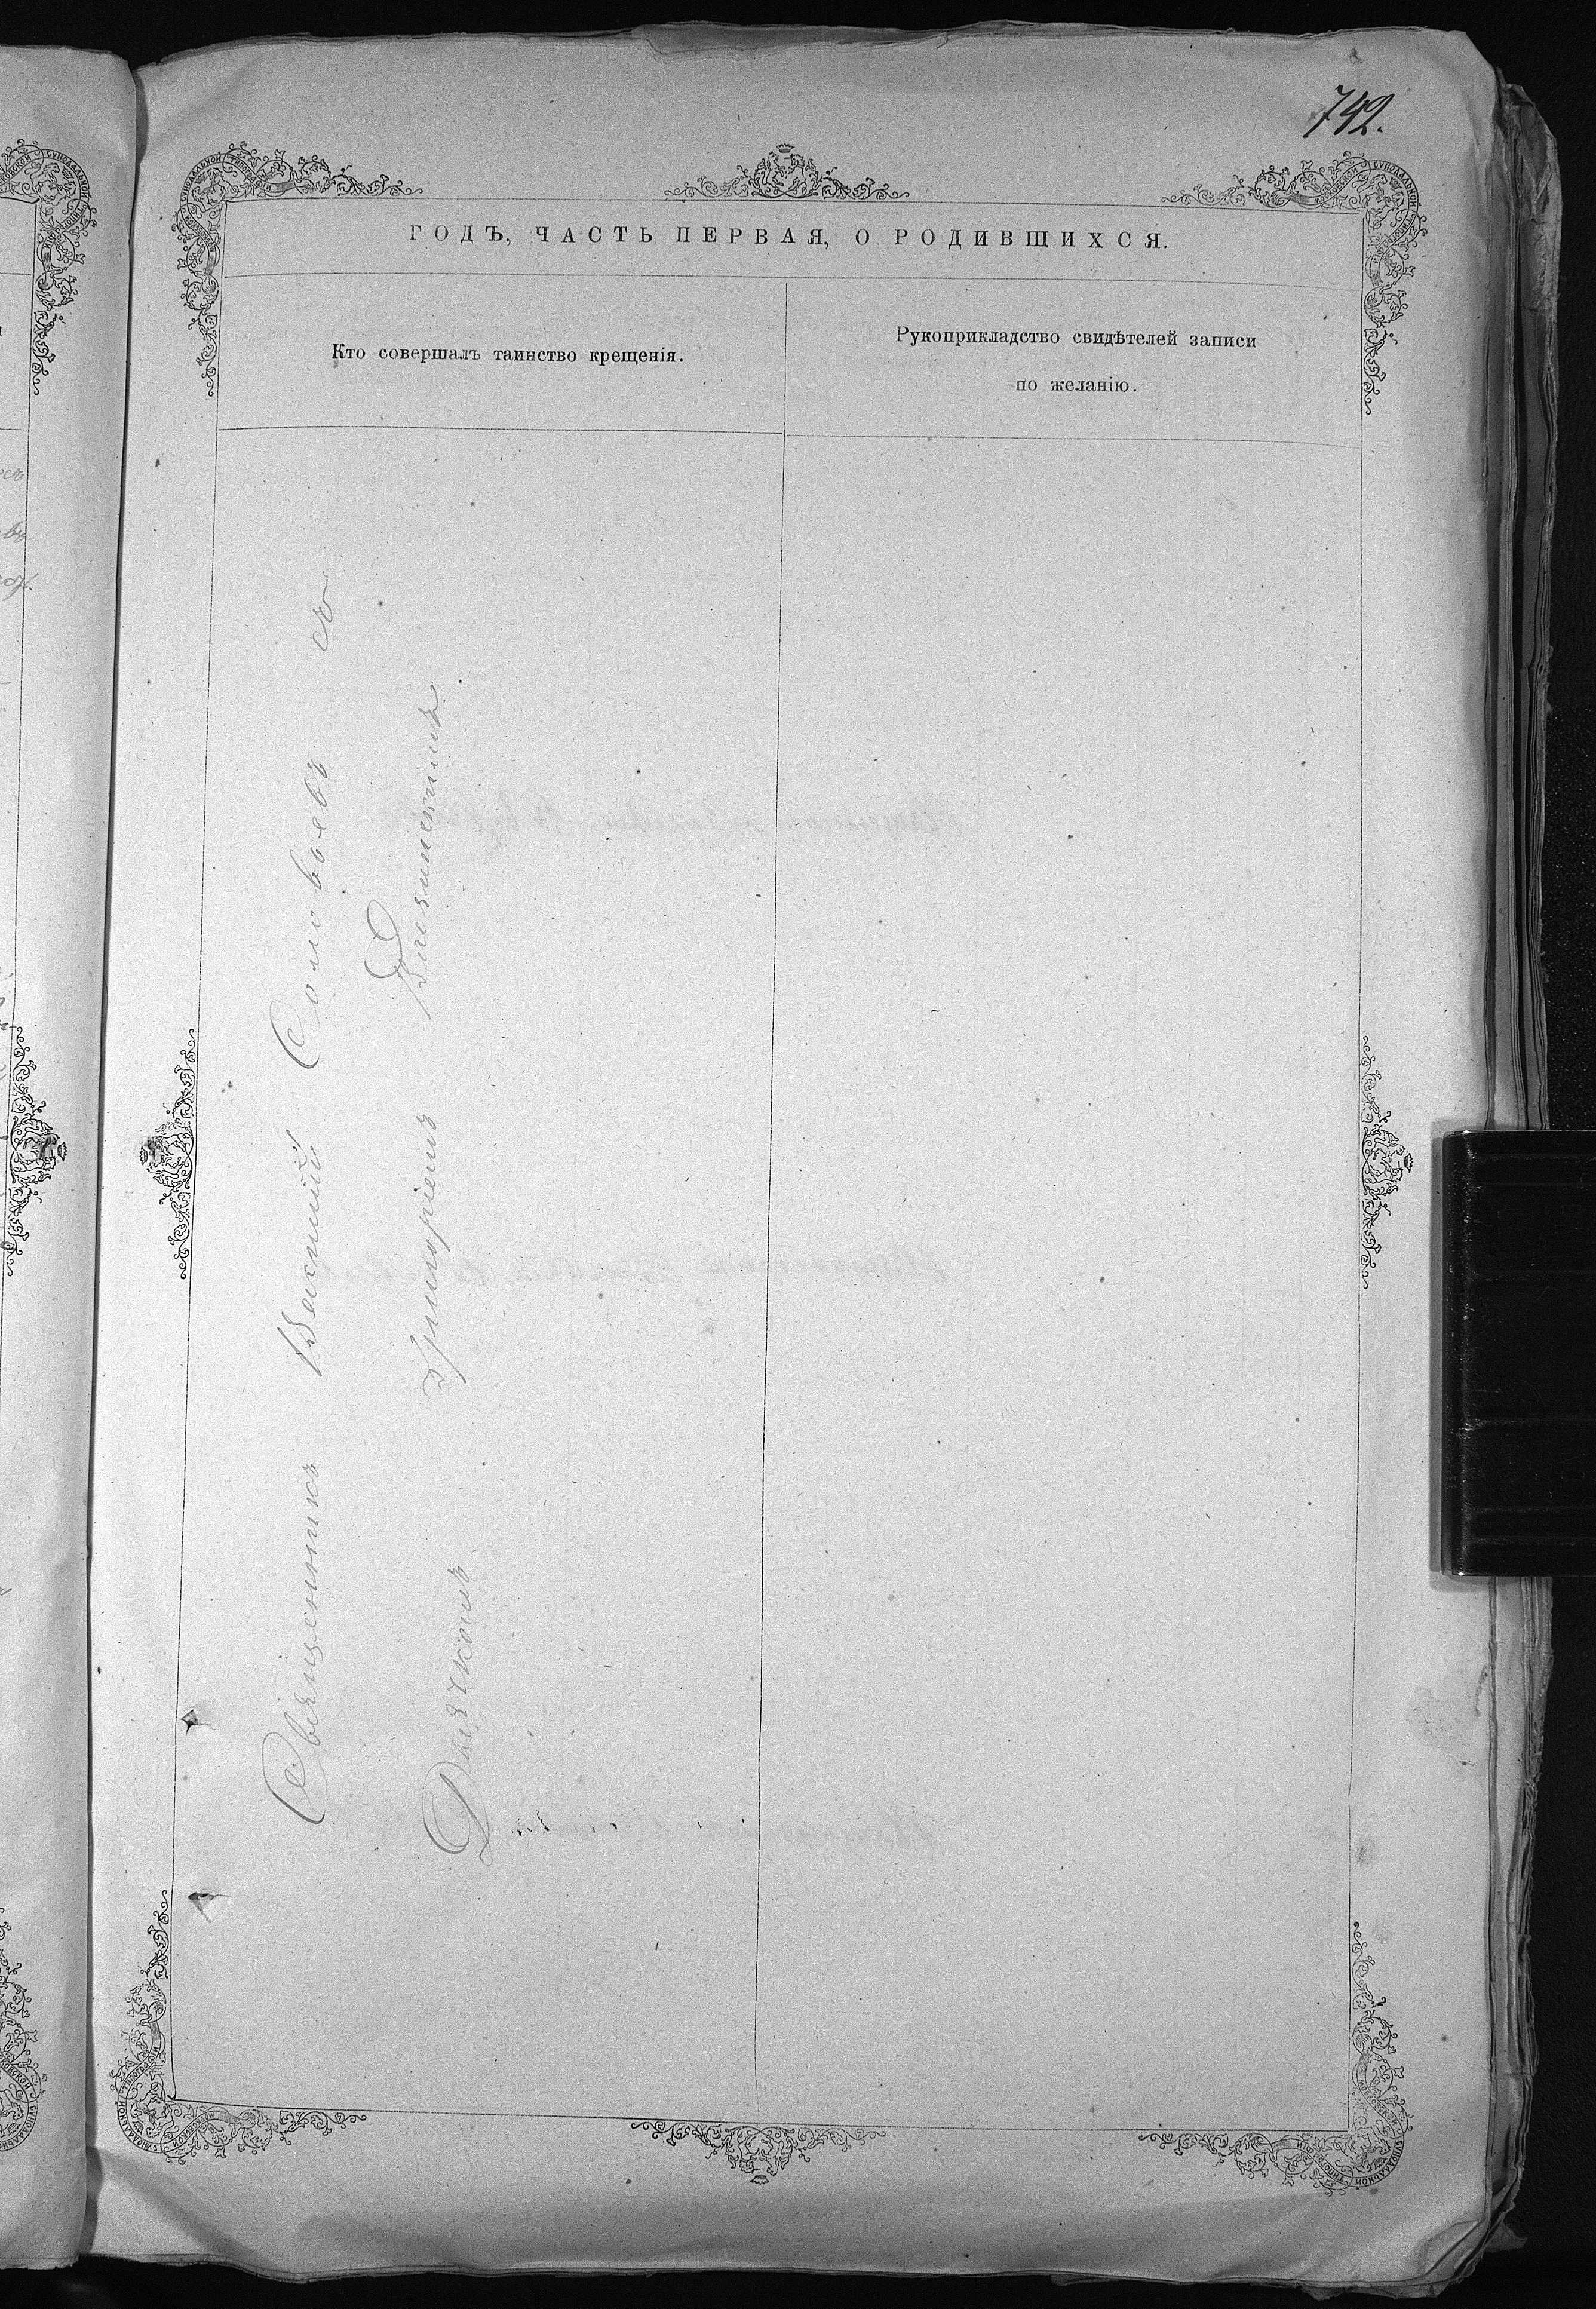 742.
ГОДЪ, ЧАСТЬ ПЕРВАЯ, О РОДИВШИХСЯ.
Кто совершалъ таинство крещенія.
Рукоприкладство свидѣтелей записи
по желанію.
Священникъ Василій Соловьевъ съ
Дьячкомъ Григоріемъ